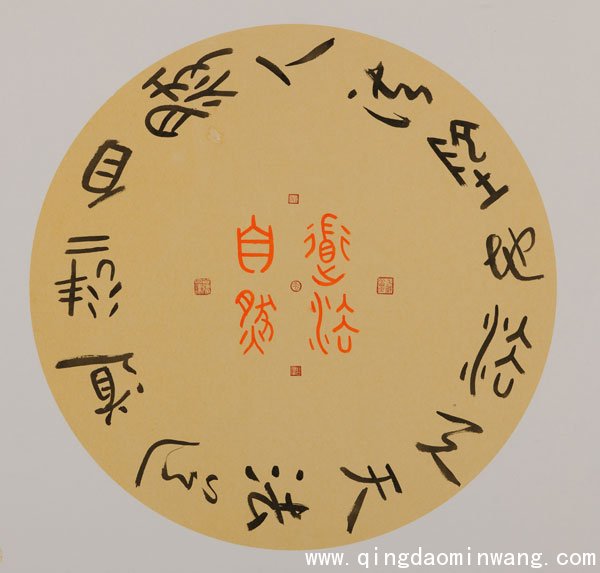 人法地地法天天法道道法自然
道法
自然
www.qingdaominwang.com